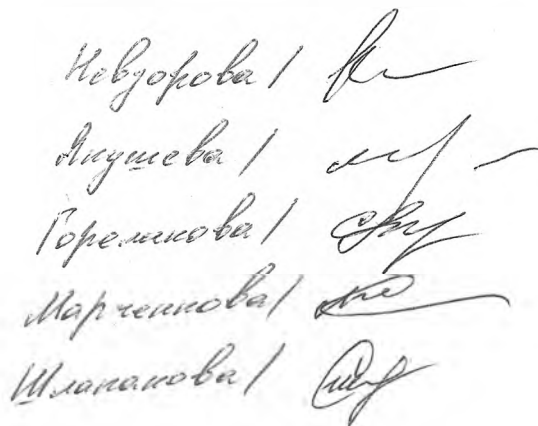 Невзорова /
Якушева /
Гореликова /
Марченкова /
Шлапакова /